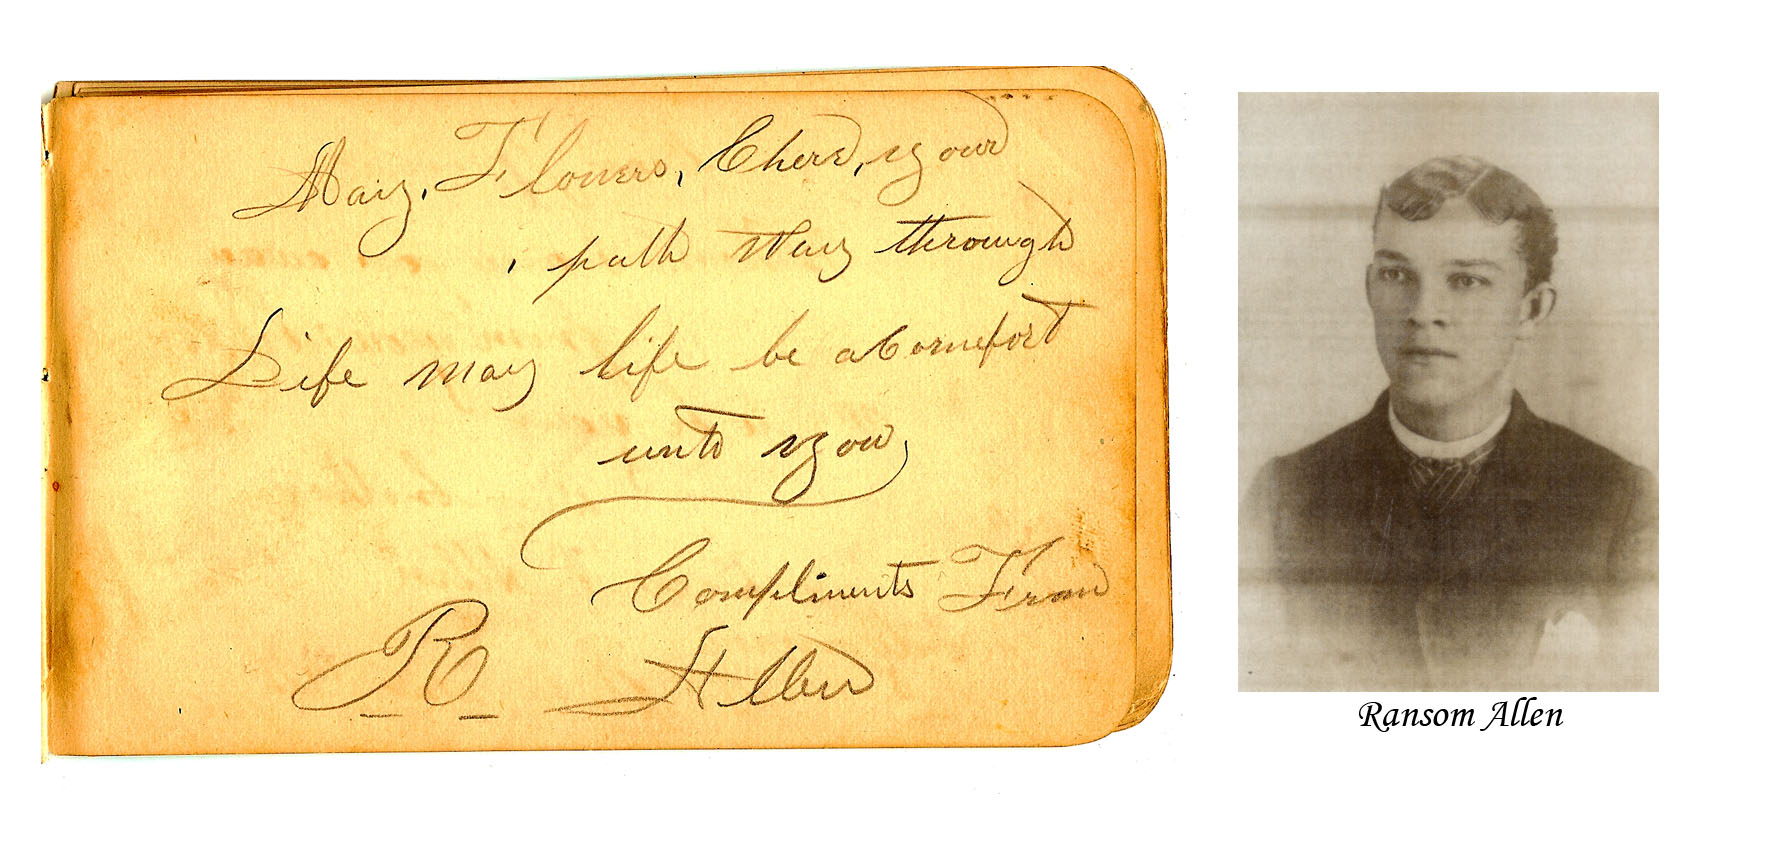 May, Flowers, Chere, your
path Way through
Life may life be a Comefort
unto you
Compliments From
R Allen
Ransom Allen